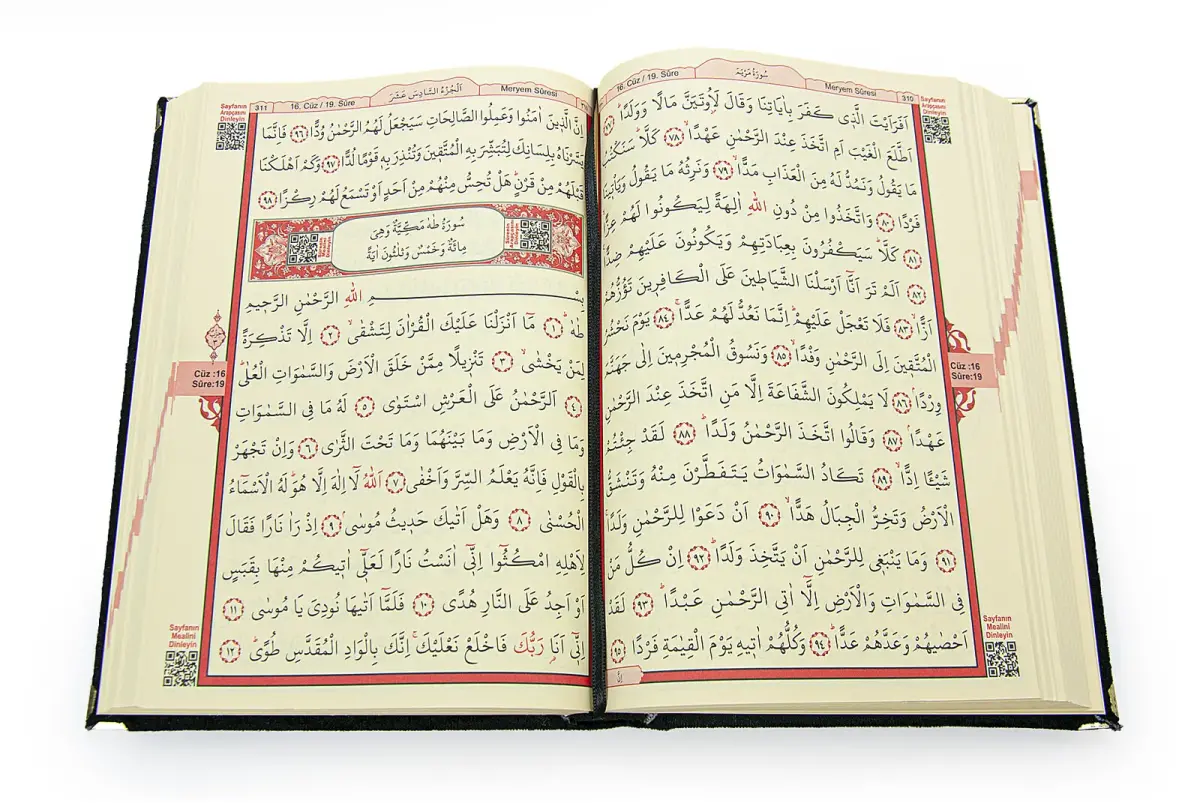 16. Cüz / 19. Sûre
سُورَةُ مَرْيَمَ
Meryem Sûresi
310
Sayfanın
Arapçasını
Dinleyin
اَفَرَاَيْتَ الَّذ۪ي كَفَرَ بِاٰيَاتِنَا وَقَالَ لَاُو۫تَيَنَّ مَالًا وَوَلَدًاۜ ﴿٧٧﴾
اَطَّلَعَ الْغَيْبَ اَمِ اتَّخَذَ عِنْدَ الرَّحْمٰنِ عَهْدًاۙ ﴿٧٨﴾ كَلَّاۜ سَنَكْتُبُ
مَا يَقُولُ وَنَمُدُّ لَهُ مِنَ الْعَذَابِ مَدًّاۙ ﴿٧٩﴾ وَنَرِثُهُ مَا يَقُولُ وَيَأْت۪ينَا
فَرْدًا ﴿٨٠﴾ وَاتَّخَذُوا مِنْ دُونِ اللّٰهِ اٰلِهَةً لِيَكُونُوا لَهُمْ عِزًّاۙ
﴿٨١﴾ كَلَّاۜ سَيَكْفُرُونَ بِعِبَادَتِهِمْ وَيَكُونُونَ عَلَيْهِمْ ضِدًّا۟
﴿٨٢﴾ اَلَمْ تَرَ اَنَّٓا اَرْسَلْنَا الشَّيَاط۪ينَ عَلَى الْكَافِر۪ينَ تَؤُزُّهُمْ
اَزًّاۙ ﴿٨٣﴾ فَلَا تَعْجَلْ عَلَيْهِمْۜ اِنَّمَا نَعُدُّ لَهُمْ عَدًّاۚ ﴿٨٤﴾ يَوْمَ نَحْشُرُ
الْمُتَّق۪ينَ اِلَى الرَّحْمٰنِ وَفْدًاۙ ﴿٨٥﴾ وَنَسُوقُ الْمُجْرِم۪ينَ اِلٰى جَهَنَّمَ
وِرْدًاۢ ﴿٨٦﴾ لَا يَمْلِكُونَ الشَّفَاعَةَ اِلَّا مَنِ اتَّخَذَ عِنْدَ الرَّحْمٰنِ
عَهْدًاۢ ﴿٨٧﴾ وَقَالُوا اتَّخَذَ الرَّحْمٰنُ وَلَدًاۜ ﴿٨٨﴾ لَقَدْ جِئْتُمْ
شَيْـًٔا اِدًّاۙ ﴿٨٩﴾ تَكَادُ السَّمٰوَاتُ يَتَفَطَّرْنَ مِنْهُ وَتَنْشَقُّ
الْاَرْضُ وَتَخِرُّ الْجِبَالُ هَدًّاۙ ﴿٩٠﴾ اَنْ دَعَوْا لِلرَّحْمٰنِ وَلَدًاۚ
﴿٩١﴾ وَمَا يَنْبَغ۪ي لِلرَّحْمٰنِ اَنْ يَتَّخِذَ وَلَدًاۜ ﴿٩٢﴾ اِنْ كُلُّ مَنْ
فِي السَّمٰوَاتِ وَالْاَرْضِ اِلَّٓا اٰتِي الرَّحْمٰنِ عَبْدًاۜ ﴿٩٣﴾ لَقَدْ
اَحْصٰيهُمْ وَعَدَّهُمْ عَدًّاۜ ﴿٩٤﴾ وَكُلُّهُمْ اٰت۪يهِ يَوْمَ الْقِيٰمَةِ فَرْدًا ﴿٩٥﴾
اِنَّ
Cüz :16
Sûre:19
Sayfanın
Mealini
Dinleyin
311
16. Cüz / 19. Sûre
اَلْجُزْءُ السَّادِسَ عَشَرَ
Meryem Sûresi
Sayfanın
Arapçasını
Dinleyin
اِنَّ الَّذ۪ينَ اٰمَنُوا وَعَمِلُوا الصَّالِحَاتِ سَيَجْعَلُ لَهُمُ الرَّحْمٰنُ وُدًّا ﴿٩٦﴾ فَاِنَّمَا
يَسَّرْنَاهُ بِلِسَانِكَ لِتُبَشِّرَ بِهِ الْمُتَّق۪ينَ وَتُنْذِرَ بِه۪ قَوْمًا لُدًّا ﴿٩٧﴾ وَكَمْ اَهْلَكْنَا
قَبْلَهُمْ مِنْ قَرْنٍۜ هَلْ تُحِسُّ مِنْهُمْ مِنْ اَحَدٍ اَوْ تَسْمَعُ لَهُمْ رِكْزًا ﴿٩٨﴾
سُورَةُ طٰهٰ مَكِّيَّةٌ وَهِيَ
مِائَةٌ وَخَمْسٌ وَثَلٰثُونَ اٰيَةً
بِسْمِ اللّٰهِ الرَّحْمٰنِ الرَّح۪يمِ
طٰهٰۜ ﴿١﴾ مَٓا اَنْزَلْنَا عَلَيْكَ الْقُرْاٰنَ لِتَشْقٰىۙ ﴿٢﴾ اِلَّا تَذْكِرَةً
لِمَنْ يَخْشٰىۙ ﴿٣﴾ تَنْز۪يلًا مِمَّنْ خَلَقَ الْاَرْضَ وَالسَّمٰوَاتِ الْعُلٰىۜ
﴿٤﴾ اَلرَّحْمٰنُ عَلَى الْعَرْشِ اسْتَوٰى ﴿٥﴾ لَهُ مَا فِي السَّمٰوَاتِ
وَمَا فِي الْاَرْضِ وَمَا بَيْنَهُمَا وَمَا تَحْتَ الثَّرٰى ﴿٦﴾ وَاِنْ تَجْهَرْ
بِالْقَوْلِ فَاِنَّهُ يَعْلَمُ السِّرَّ وَاَخْفٰى ﴿٧﴾ اَللّٰهُ لَٓا اِلٰهَ اِلَّا هُوَۜ لَهُ الْاَسْمَٓاءُ
الْحُسْنٰى ﴿٨﴾ وَهَلْ اَتٰيكَ حَد۪يثُ مُوسٰىۢ ﴿٩﴾ اِذْ رَاٰ نَارًا فَقَالَ
لِاَهْلِهِ امْكُثُٓوا اِنّ۪ٓي اٰنَسْتُ نَارًا لَعَلّ۪ٓي اٰت۪يكُمْ مِنْهَا بِقَبَسٍ
اَوْ اَجِدُ عَلَى النَّارِ هُدًى ﴿١٠﴾ فَلَمَّٓا اَتٰيهَا نُودِيَ يَا مُوسٰى ﴿١١﴾
اِنّ۪ٓي اَنَا رَبُّكَ فَاخْلَعْ نَعْلَيْكَۚ اِنَّكَ بِالْوَادِ الْمُقَدَّسِ طُوًىۜ ﴿١٢﴾
Cüz :16
Sûre:19
Sayfanın
Mealini
Dinleyin